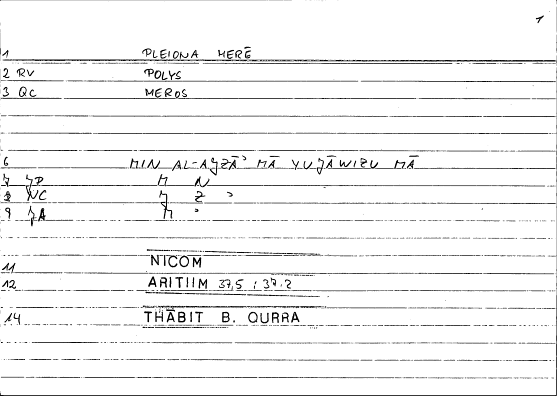 1
1 PLEIONA MERĒ
2 RV POLYS
3 QC MEROS
6 MIN AL-AǦZĀʾ MĀ YUǦĀWIZU MĀ
7 ǦP M N
8 NC Ǧ Z ʾ
9 ǦA M ʾ
11 NICOM
12 ARITIIM 37,5 ; 37.2
14 THĀBIT B. QURRA